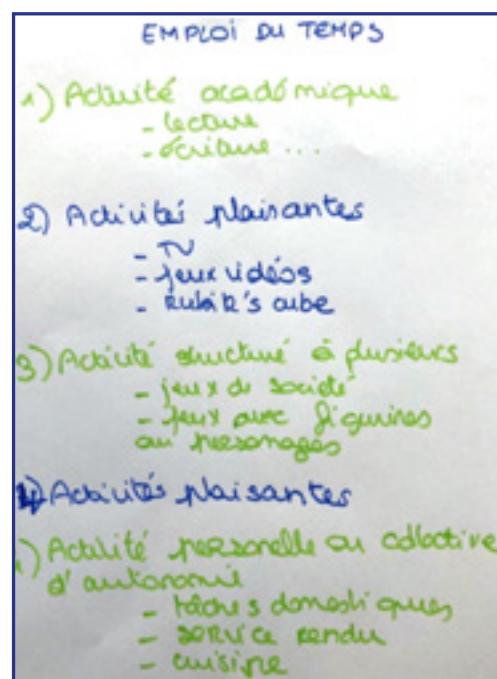 EMPLOI DU TEMPS
1) Activité académique
- lecture
- écriture ...
2) Activités plaisantes
- TV
- jeux vidéos
- Rubik's cube
3) Activité structuré à plusieurs
- jeux de société
- jeux avec figurines
ou personages
4) Activités plaisantes
1) Activité personelle ou collective
d'autonomie
- tâches domestiques
- service rendu
- cuisine